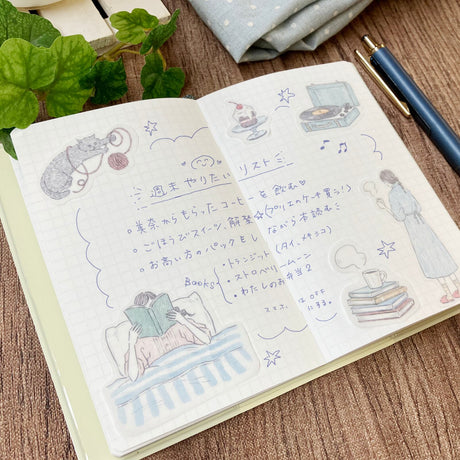 週末やりたいリスト
○ 美奈からもらったコーヒーを飲む♡
○ ごほうびスイーツ解禁☆(プリエのケーキ買う!)
○ お高い方のパックをしながら本読む
(タイ、メキシコ)
Books
・トランジット
・ストロベリームーン
・わたしのお弁当2
OFF